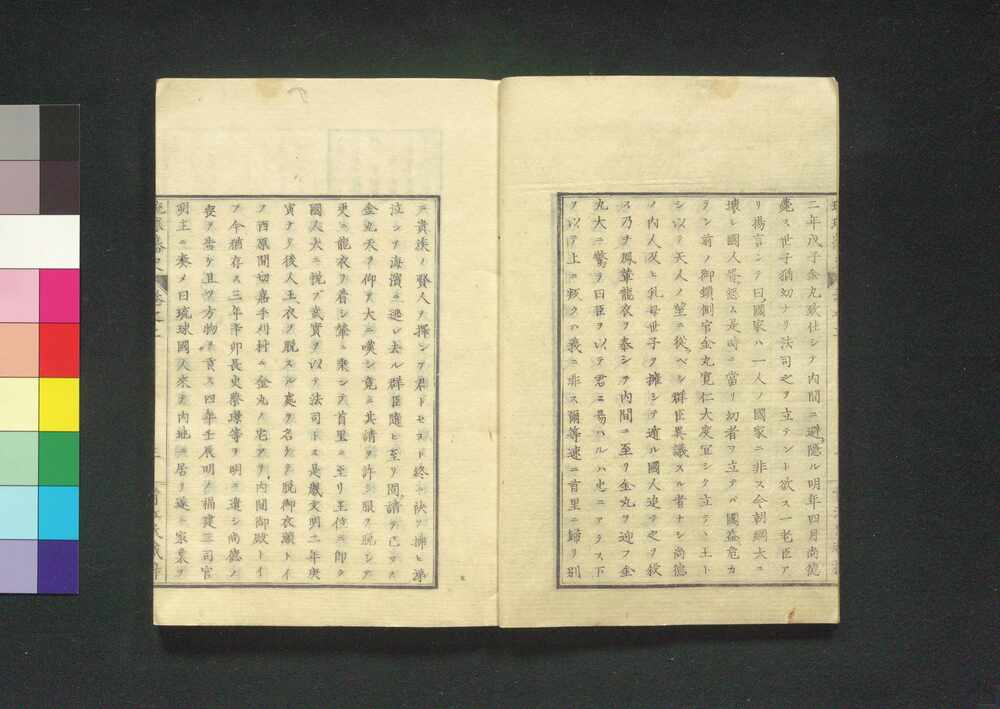 二年戊子金丸致仕シテ内間ニ避隠ル明年四月尚徳
薨ス世子猶幼ナリ法司之ヲ立テント欲ス一老臣ア
リ揚言シテ曰國家ハ一人ノ國家ニ非ス今朝綱大ニ
壊レ國人胥怨ム是時ニ當リ幼者ヲ立テバ國益危カ
ラン前ノ御鎖側官金丸寛仁大度宜シク立テヽ王ト
シ以テ天人ノ望ニ從ベシ群臣異議スル者ナシ尚徳
ノ内人及ヒ乳母世子ヲ擁シテ遁ル國人追テ之ヲ殺
ス乃チ鳳輦龍衣ヲ奉シテ内間ニ至リ金丸ヲ迎フ金
丸大ニ驚テ曰臣ヲ以テ君ニ易ハルハ忠ニアラス下
ヲ以テ上ニ叛クハ義ニ非ス爾等速ニ首里ニ歸リ別
ニ貴族ノ賢人ヲ擇ンテ君トセヨト終ニ訣ヲ揮ヒ涕
泣シテ海濱ニ逃レ去ル群臣隨ヒ至リ間請テ已マス
金丸天ヲ仰テ大ニ嘆シ竟ニ其請ヲ許シ服ヲ脱シテ
更ニ龍衣ヲ着シ輦ニ乗シテ首里ニ至リ王位ニ即ク
國人大ニ悦ブ武實ヲ以テ法司トス是歳文明二年庚
寅ナリ後人王衣ヲ脱スル處ヲ名ケテ脱御衣瀬トイ
ノ西原間切嘉手刈村ニ金丸ノ宅アリ内間御殿トイ
フ今猶存ス三年辛卯長史蔡璟等ヲ明ニ遣シ尚徳ノ
喪ヲ告ケ且ツ方物ヲ貢ス四年壬辰明ノ福建三司官
明主ニ奏メ曰琉球國人來テ内地ニ居リ遂ニ家業ヲ